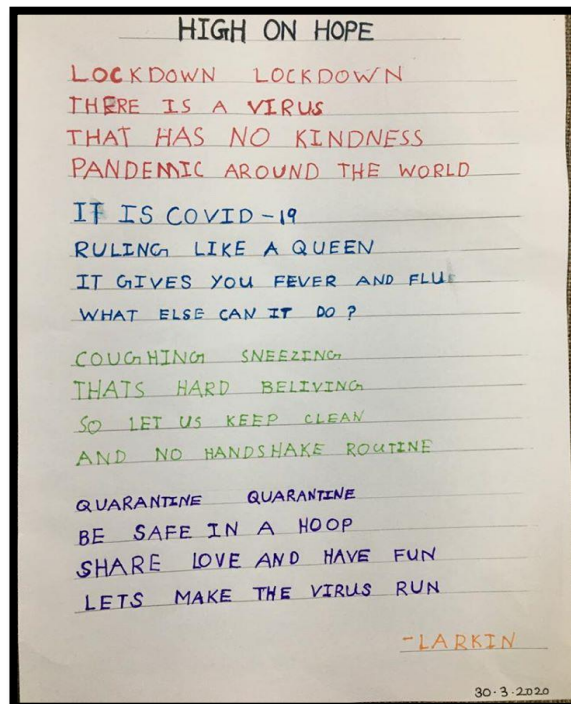 HIGH ON HOPE
LOCKDOWN LOCKDOWN
THERE IS A VIRUS
THAT HAS NO KINDNESS
PANDEMIC AROUND THE WORLD
IT IS COVID-19
RULING LIKE A QUEEN
IT GIVES YOU FEVER AND FLU
WHAT ELSE CAN IT DO?
COUGHING SNEEZING
THATS HARD BELIVING
SO LET US KEEP CLEAN
AND NO HANDSHAKE ROUTINE
QUARANTINE QUARANTINE
BE SAFE IN A HOOP
SHARE LOVE AND HAVE FUN
LETS MAKE THE VIRUS RUN
-LARKIN
30.3.2020